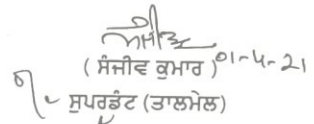 ਸੰਜੀਵ
( ਸੰਜੀਵ ਕੁਮਾਰ ) 01-4-21
ਸੁਪਰਡੰਟ (ਤਾਲਮੇਲ)